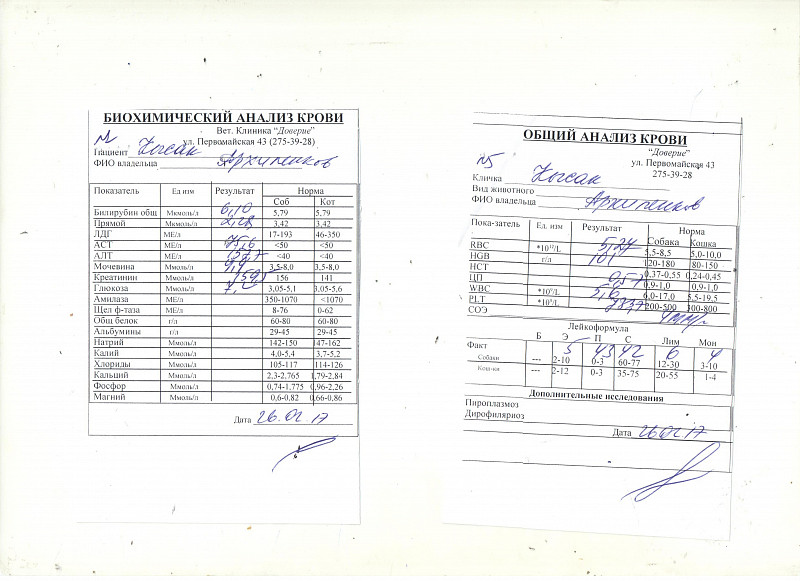 БИОХИМИЧЕСКИЙ АНАЛИЗ КРОВИ
Вет. Клиника “Доверие”
ул. Первомайская 43 (275-39-28)
Пациент
ФИО владельца Архипенков
Показатель Ед изм Результат Норма
Соб Кот
Билирубин общ Мкмоль/л 6,10 5,79 5,79
Прямой Мкмоль/л 2,28 3,42 3,42
ЛДГ МЕ/л 17-193 46-350
АСТ МЕ/л 75,6 <50 <50
АЛТ МЕ/л <40 <40
Мочевина Ммоль/л 3,5-8,0 3,5-8,0
Креатинин Ммоль/л 156 141
Глюкоза Ммоль/л 3,05-5,1 3,05-5,6
Амилаза МЕ/л 350-1070 <1070
Щел ф-таза МЕ/л 8-76 0-62
Общ белок г/л 60-80 60-80
Альбумины г/л 29-45 29-45
Натрий Ммоль/л 142-150 47-162
Калий Ммоль/л 4,0-5,4 3,7-5,2
Хлориды Ммоль/л 105-117 114-126
Кальций Ммоль/л 2,3-2,765 1,79-2,84
Фосфор Ммоль/л 0,74-1,775 0,96-2,26
Магний Ммоль/л 0,6-0,82 0,66-0,86
Дата 26.02.17
ОБЩИЙ АНАЛИЗ КРОВИ
“Доверие”
ул. Первомайская 43
275-39-28
№5
Кличка
Вид животного
ФИО владельца Архипенков
Пока-затель Ед. изм Результат Норма
Собака Кошка
RBC *10¹²/L 5,27 5,5-8,5 5,0-10,0
HGB г/л 101 120-180 80-150
HCT 0,37-0,55 0,24-0,45
ЦП 0,57 0,9-1,0 0,9-1,0
WBC *10⁹/L 5,6 6,0-17,0 5,5-19,5
PLT *10⁹/L 283,7 200-500 300-800
СОЭ 4мм/г
Лейкоформула
Б Э П С Лим Мон
Факт 5 43 42 6 4
Собаки --- 2-10 0-3 60-77 12-30 3-10
Кошки --- 2-12 0-3 35-75 20-55 1-4
Дополнительные исследования
Пироплазмоз
Дирофиляриоз
Дата 26.02.17